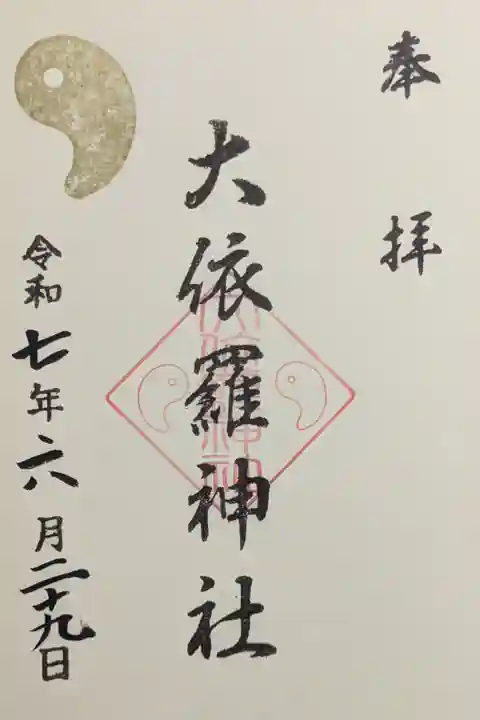 奉拝
大依羅神社
令和七年六月二十九日